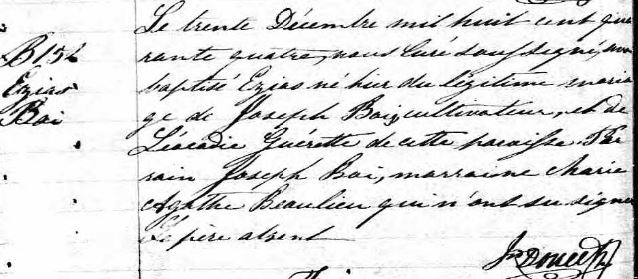 B 152
Ezias
Boi
Le trente Décembre mil huit cent qua
rante quatre, nous Curé soussigné, avons
baptisé Ezias né hier du légitime maria
ge de Joseph Boi, cultivateur, et de
Léocadie Guérette de cette paroisse. Par
rain Joseph Boi, marraine Marie
Agathe Beaulieu qui n'ont su signer
Le père absent